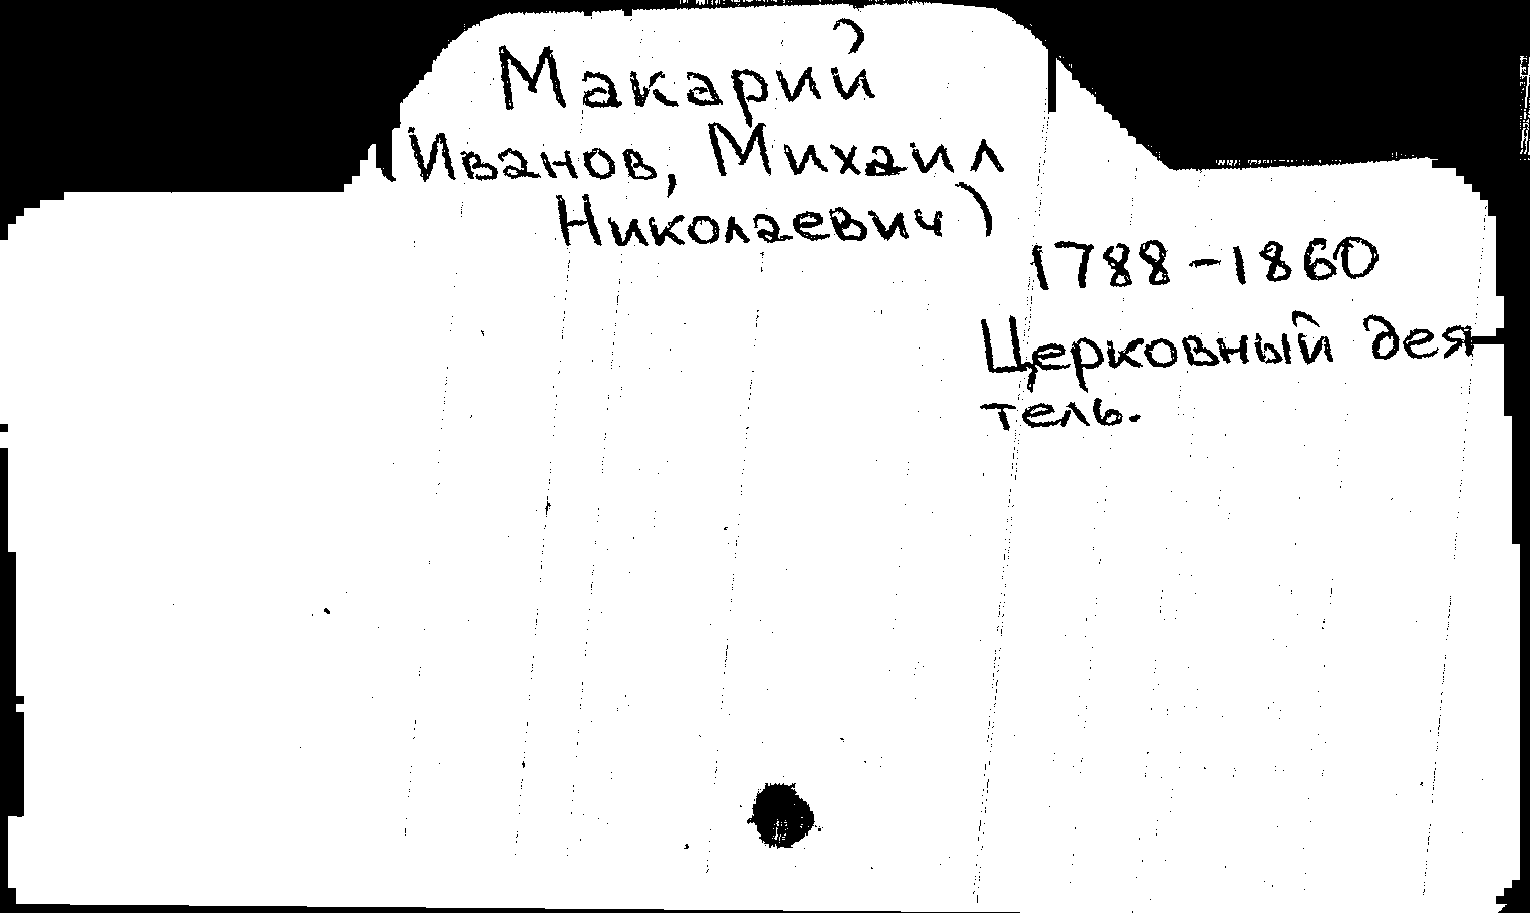 Макарий
(Иванов, Михаил
Николаевич)
1788-1860
Церковный дея-
тель.